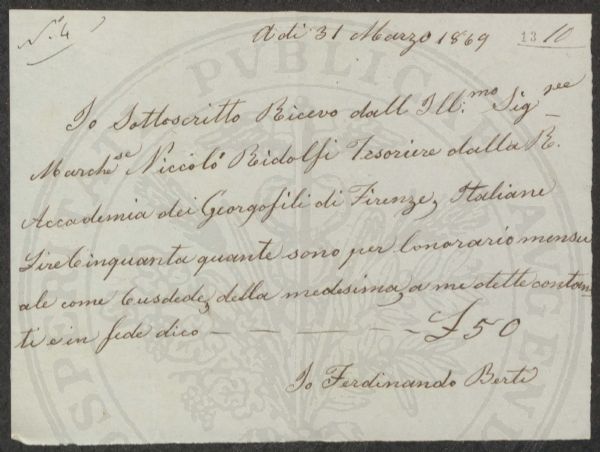 N. 4
A dì 31 Marzo 1869
13 10
Io Sottoscritto Ricevo dall Ill:mo Sig ree
Marchese Niccolò Ridolfi Tesoriere dalla R.
Accademia dei Georgofili di Firenze, Italiane
Lire Cinquanta quante sono per l'onorario mensu
ale come Cusdode, della medesima, a me dette contan
ti e in fede dico — — — — — £ 50
Io Ferdinando Berti
PVBLICAE
PROSPERITATI
AVGENDAE